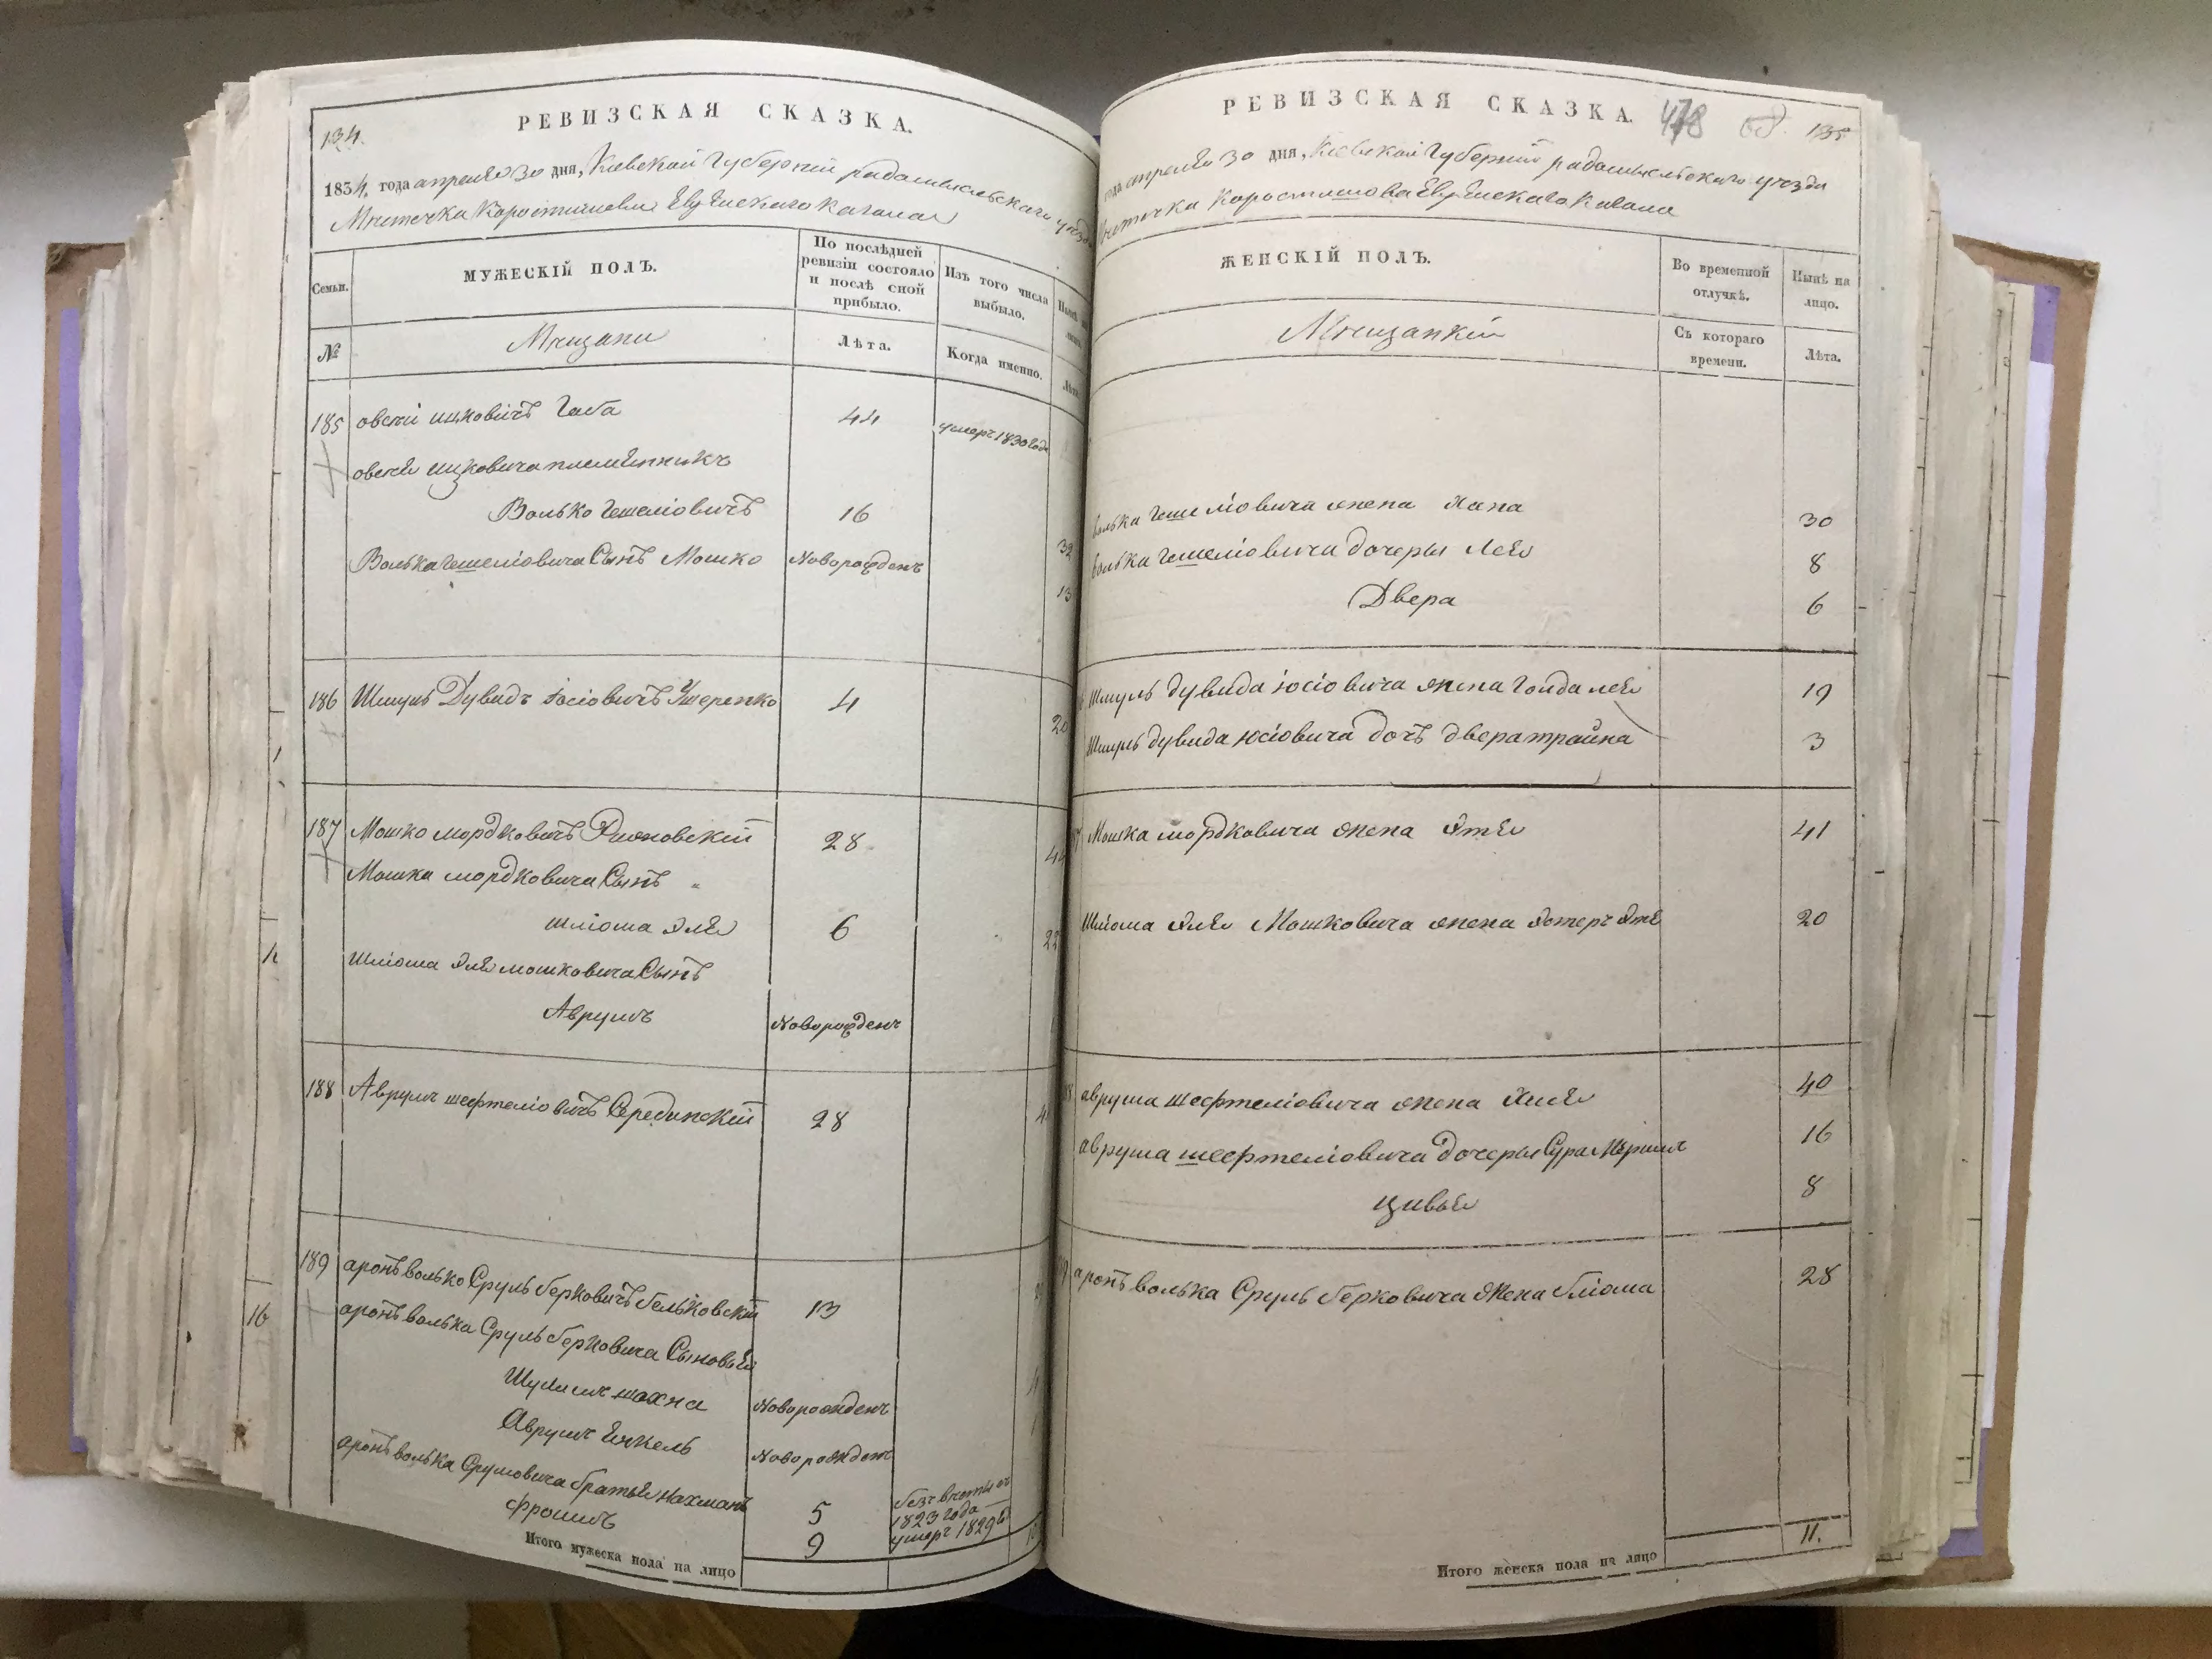 134.
РЕВИЗСКАЯ СКАЗКА.
1834. года апреля 30 дня, Киевской Губерніи радомысльскаго уезда
Мѣстечка Коростишева Еврейскаго Кагала
Семьи.
МУЖЕСКІЙ ПОЛЪ.
По послѣдней ревизіи состояло и послѣ оной прибыло.
Изъ того числа выбыло.
№
Мещане
Лѣта.
Когда именно.
185 овсей ицковичъ 44 умеръ 1830 года
овсея ицковича племенникъ
Волько Гешеліовичъ 16 32
Волька Гешеліовича Сынъ Мошко Новорожденъ 13
186 Шмуль Дувидъ іосіовичъ 4 20
187 Мошко мордковичъ 28
Мошка мордковича Сынъ
шліома Эля 6 22
Шліома Эля мошковича Сынъ
Аврумъ Новорожденъ
188 Аврумъ шефтеліовичъ Серединскій 28
189 аронъ волько Сруль берковичъ бельковскій 13
аронъ волька Сруль берковича Сыновья
шахна Новорожденъ
Аврумъ Новорожденъ
аронъ волька Срулювича братья нахманъ 5 безъ вести съ 1823 года
фроимъ 9 умеръ 1829
Итого мужеска пола на лицо
РЕВИЗСКАЯ СКАЗКА. 478 135
года апреля 30 дня, Киевской Губерніи радомысльскаго уезда
местечка Коростишова Еврейскаго Кагала
ЖЕНСКІЙ ПОЛЪ.
Во временной отлучкѣ.
Нынѣ на лицо.
Мещанкій
Съ котораго времени.
Лѣта.
волька Гешеліовича жена Хана 30
волька Гешеліовича дочеры Лея 8
Двера 6
Шмуль дувида іосіовича жена Голда лея 19
Шмуль дувида юсіовича дочъ двера трайна 3
Мошка мордковича жена Этя 41
Шліома Эля Мошковича жена Эстеръ Этя 20
аврума шефтеліовича жена Хая 40
аврума шефтеліовича дочеры Сура Миримъ 16
Цивья 8
аронъ волька Сруль берковича жена бліома 28
Итого женска пола на лицо 11.